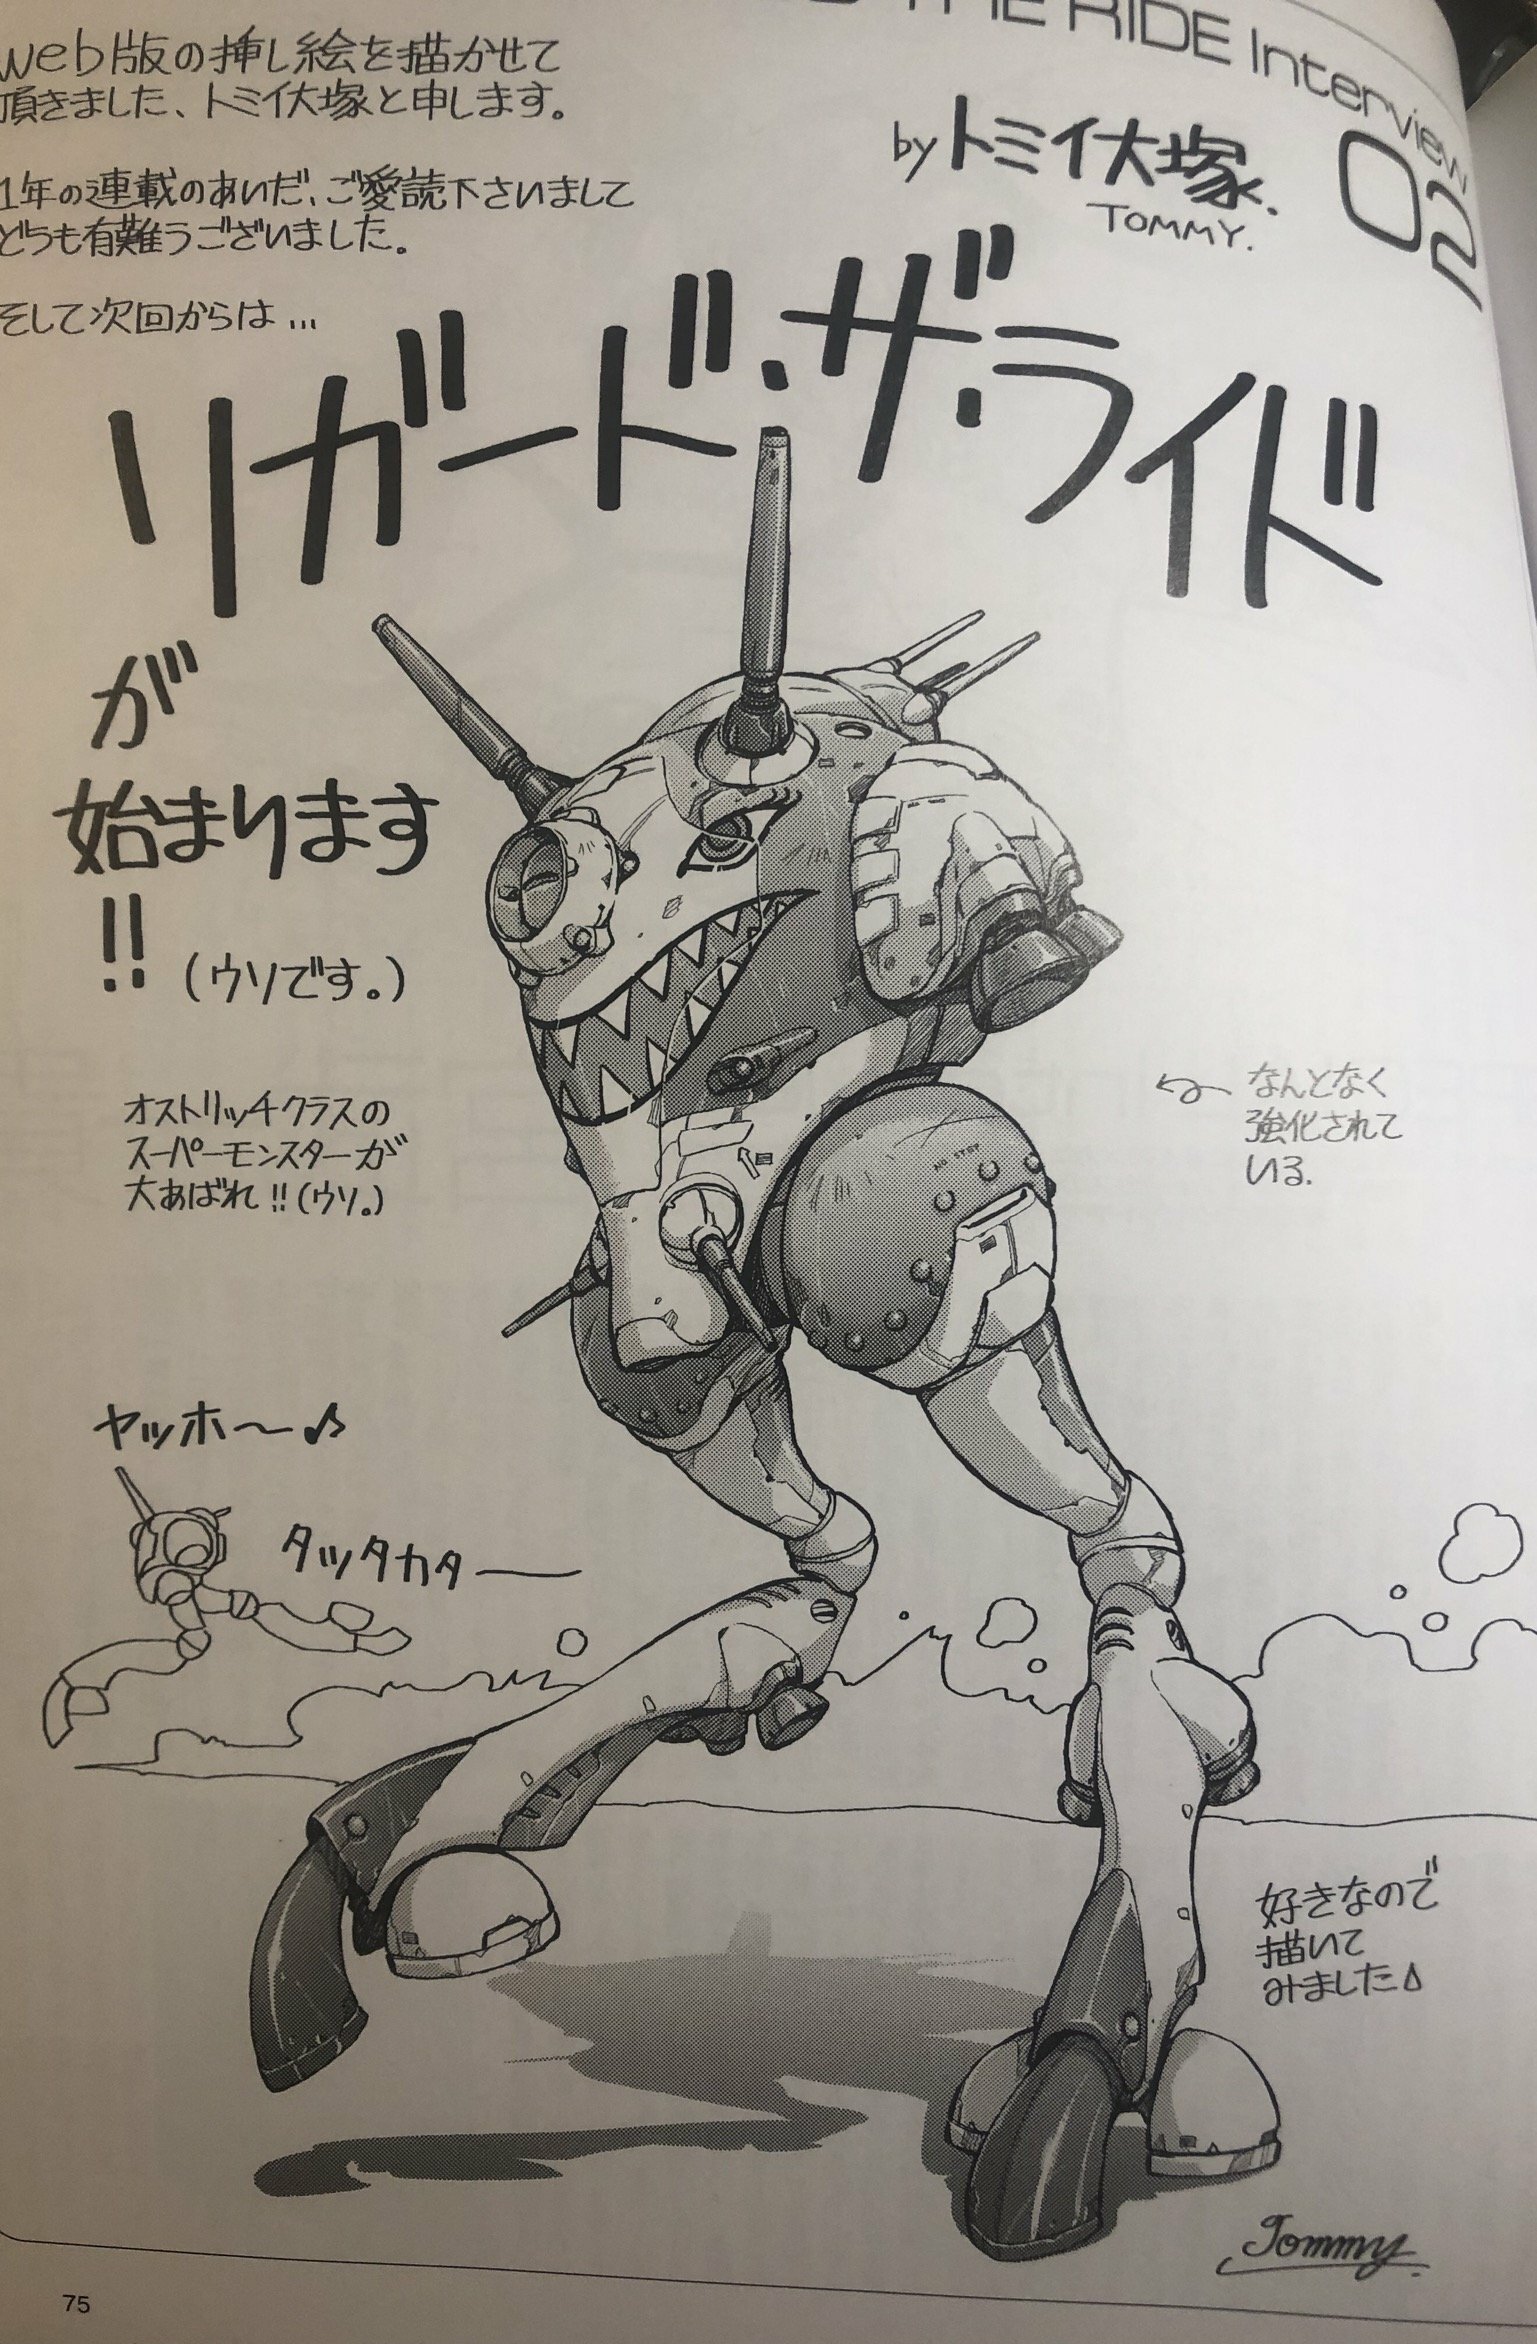 THE RIDE Interview
02
web版の挿し絵を描かせて
頂きました、トミイ大塚と申します。
1年の連載のあいだ、ご愛読下さいまして
どうも有難うございました。
そして次回からは…
by トミイ大塚.
TOMMY.
リガード・ザ・ライド
が
始まります
!!
(ウソです。)
オストリッチクラスの
スーパーモンスターが
大あばれ!!(ウソ。)
なんとなく
強化されて
いる.
NO STEP
ヤッホ〜♪
タッタカター
好きなので
描いて
みました
Tommy.
75